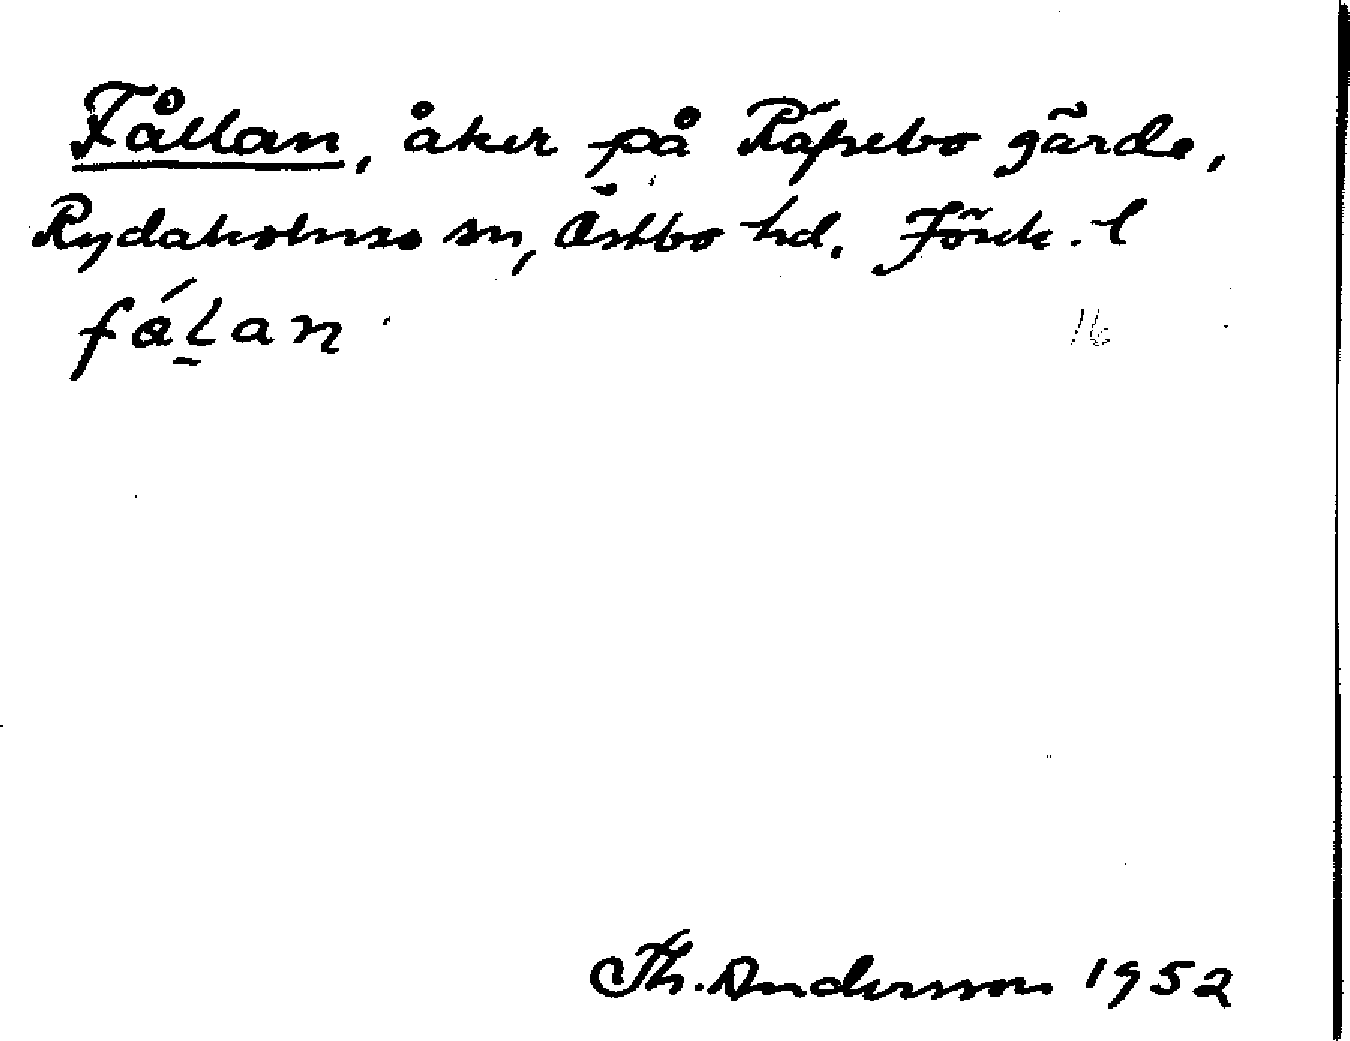 Fållan, åker på Råpsebo gärde,
Rydaholms sn, Östbo hd. Förk. l
fáḷan
16
Th. Andersson 1952